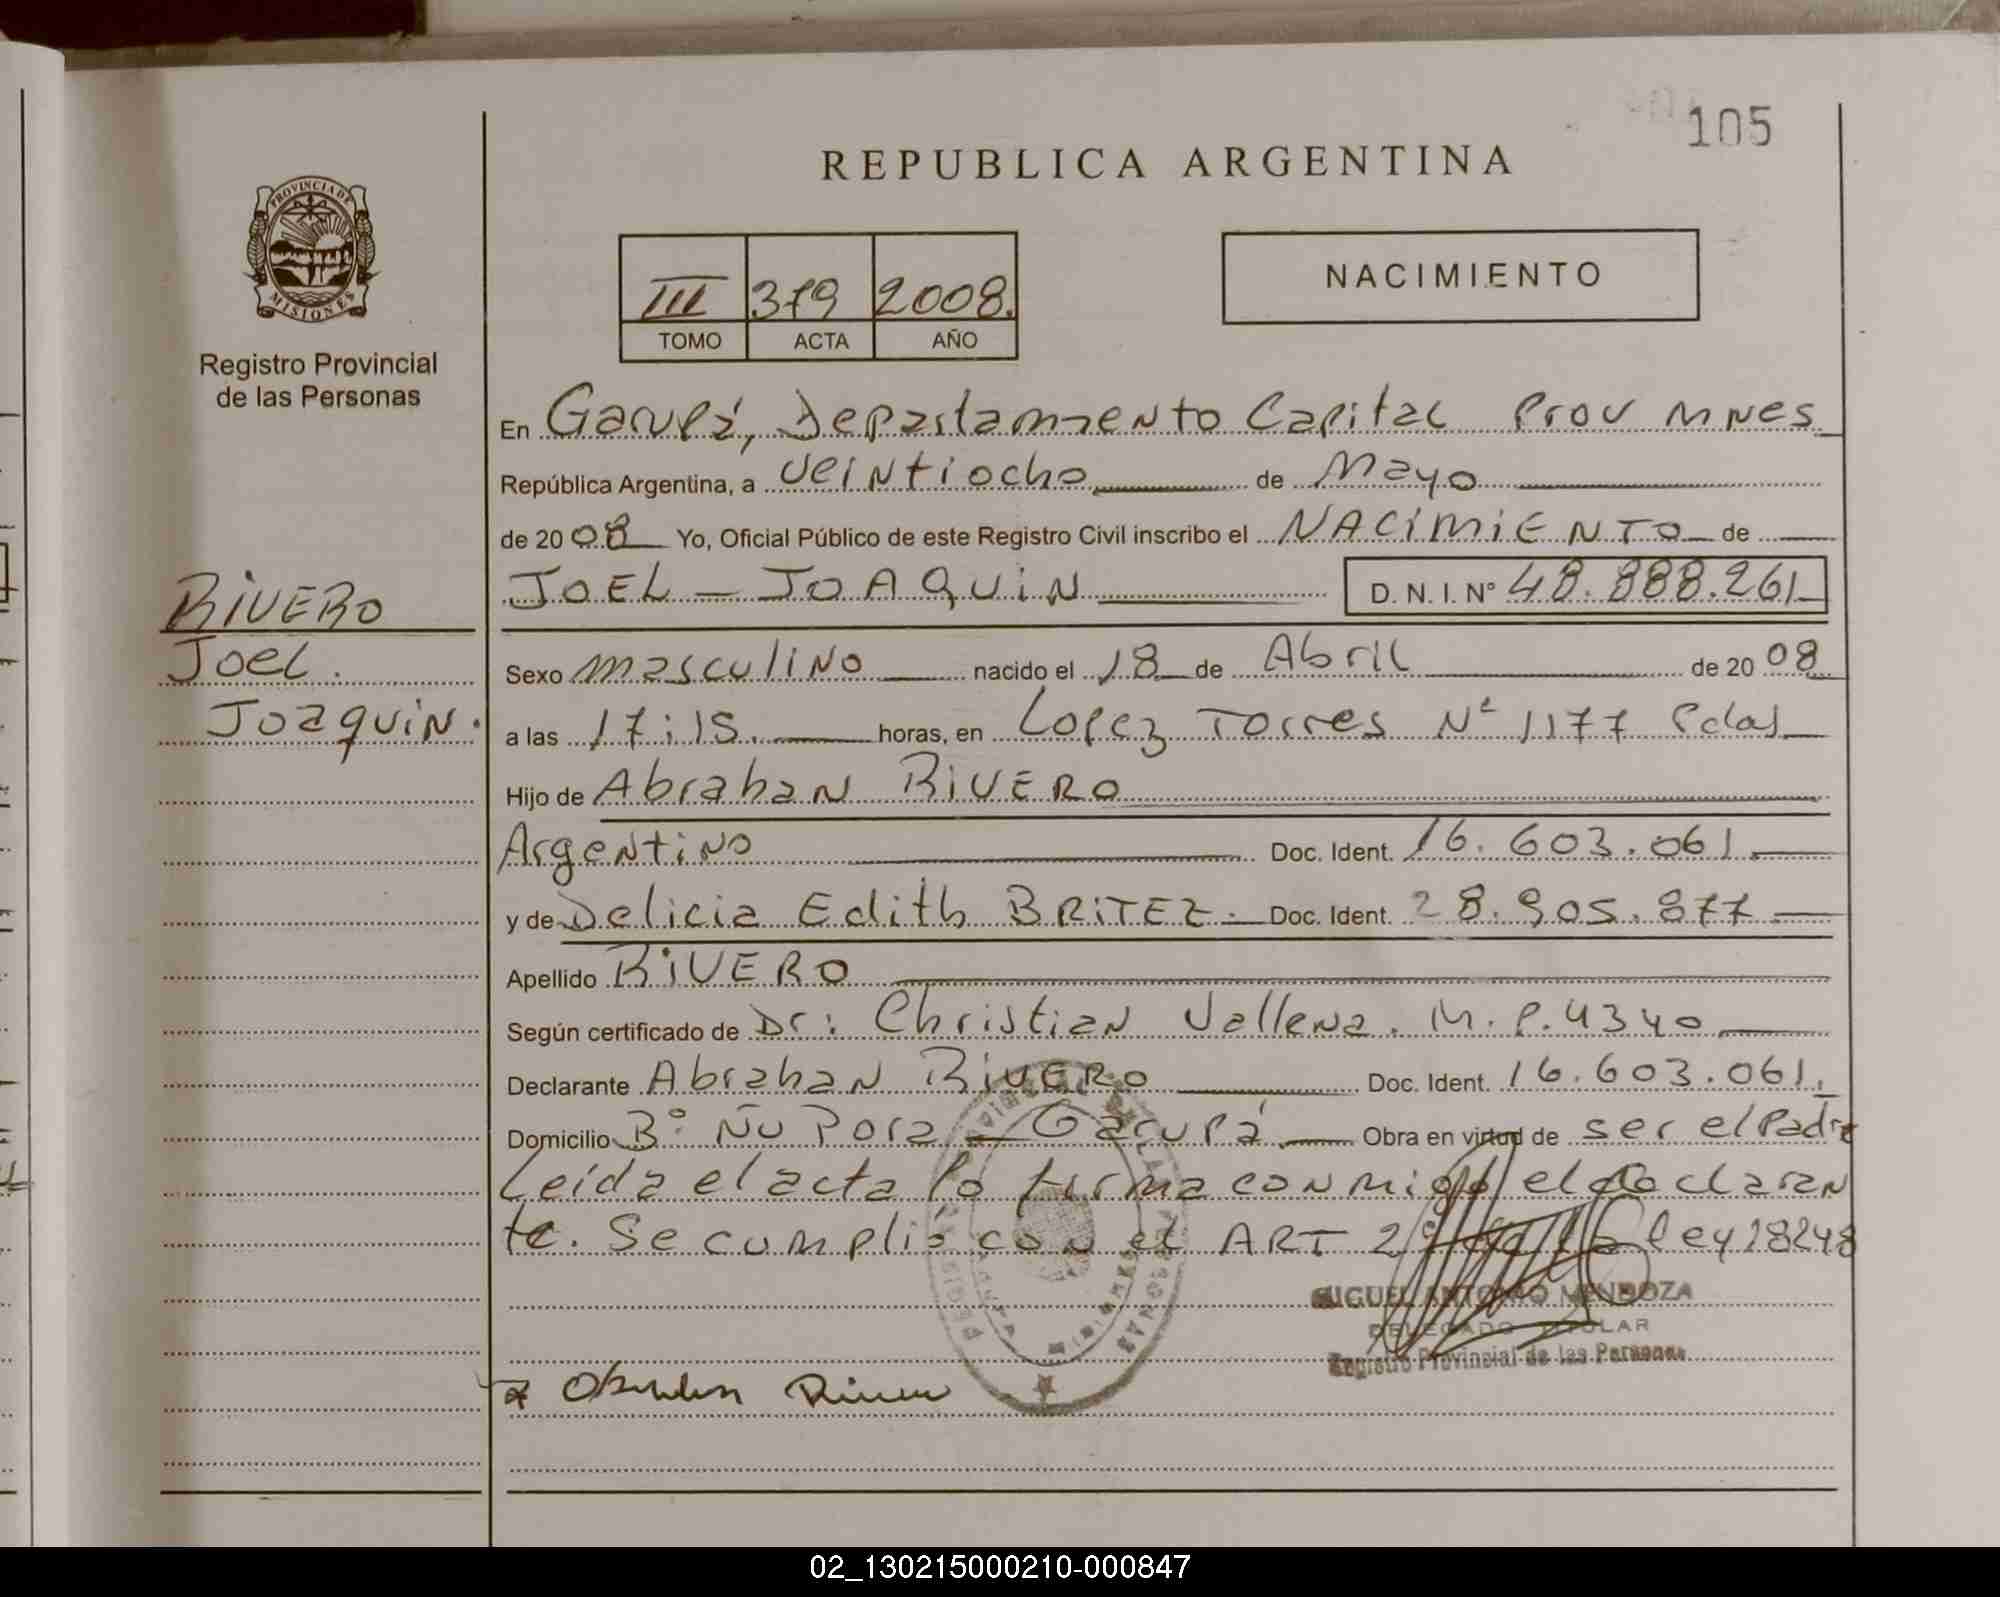 105
REPUBLICA ARGENTINA
PROVINCIA DE
MISIONES
III 379 2008.
TOMO ACTA AÑO
NACIMIENTO
Registro Provincial
de las Personas
En Garupá, Departamento Capital Prov Mnes
República Argentina, a veintiocho de Mayo
de 2008 Yo, Oficial Público de este Registro Civil inscribo el NACIMIENTO de
JOEL - JOAQUIN D. N. I. Nº 48.888.261
RIVERO
Joel.
Joaquin.
Sexo masculino nacido el 18 de Abril de 2008
a las 17:15. horas, en Lopez Torres Nº 1177 Pdas
Hijo de Abrahan RIVERO
Argentino Doc. Ident. 16.603.061
y de Delicia Edith BRITEZ. Doc. Ident. 28.905.877
Apellido RIVERO
Según certificado de Dr: Christian Vallena. M.P. 4340
Declarante Abrahan RIVERO Doc. Ident. 16.603.061.
Domicilio Bº Ñu Pora - Garupá Obra en virtud de ser el Padre
Leída el acta la firma conmigo el declaran
te. Se cumplió con el ART 2º de la ley 18248
MIGUEL ANTONIO MENDOZA
DELEGADO TITULAR
Registro Provincial de las Personas
02_130215000210-000847